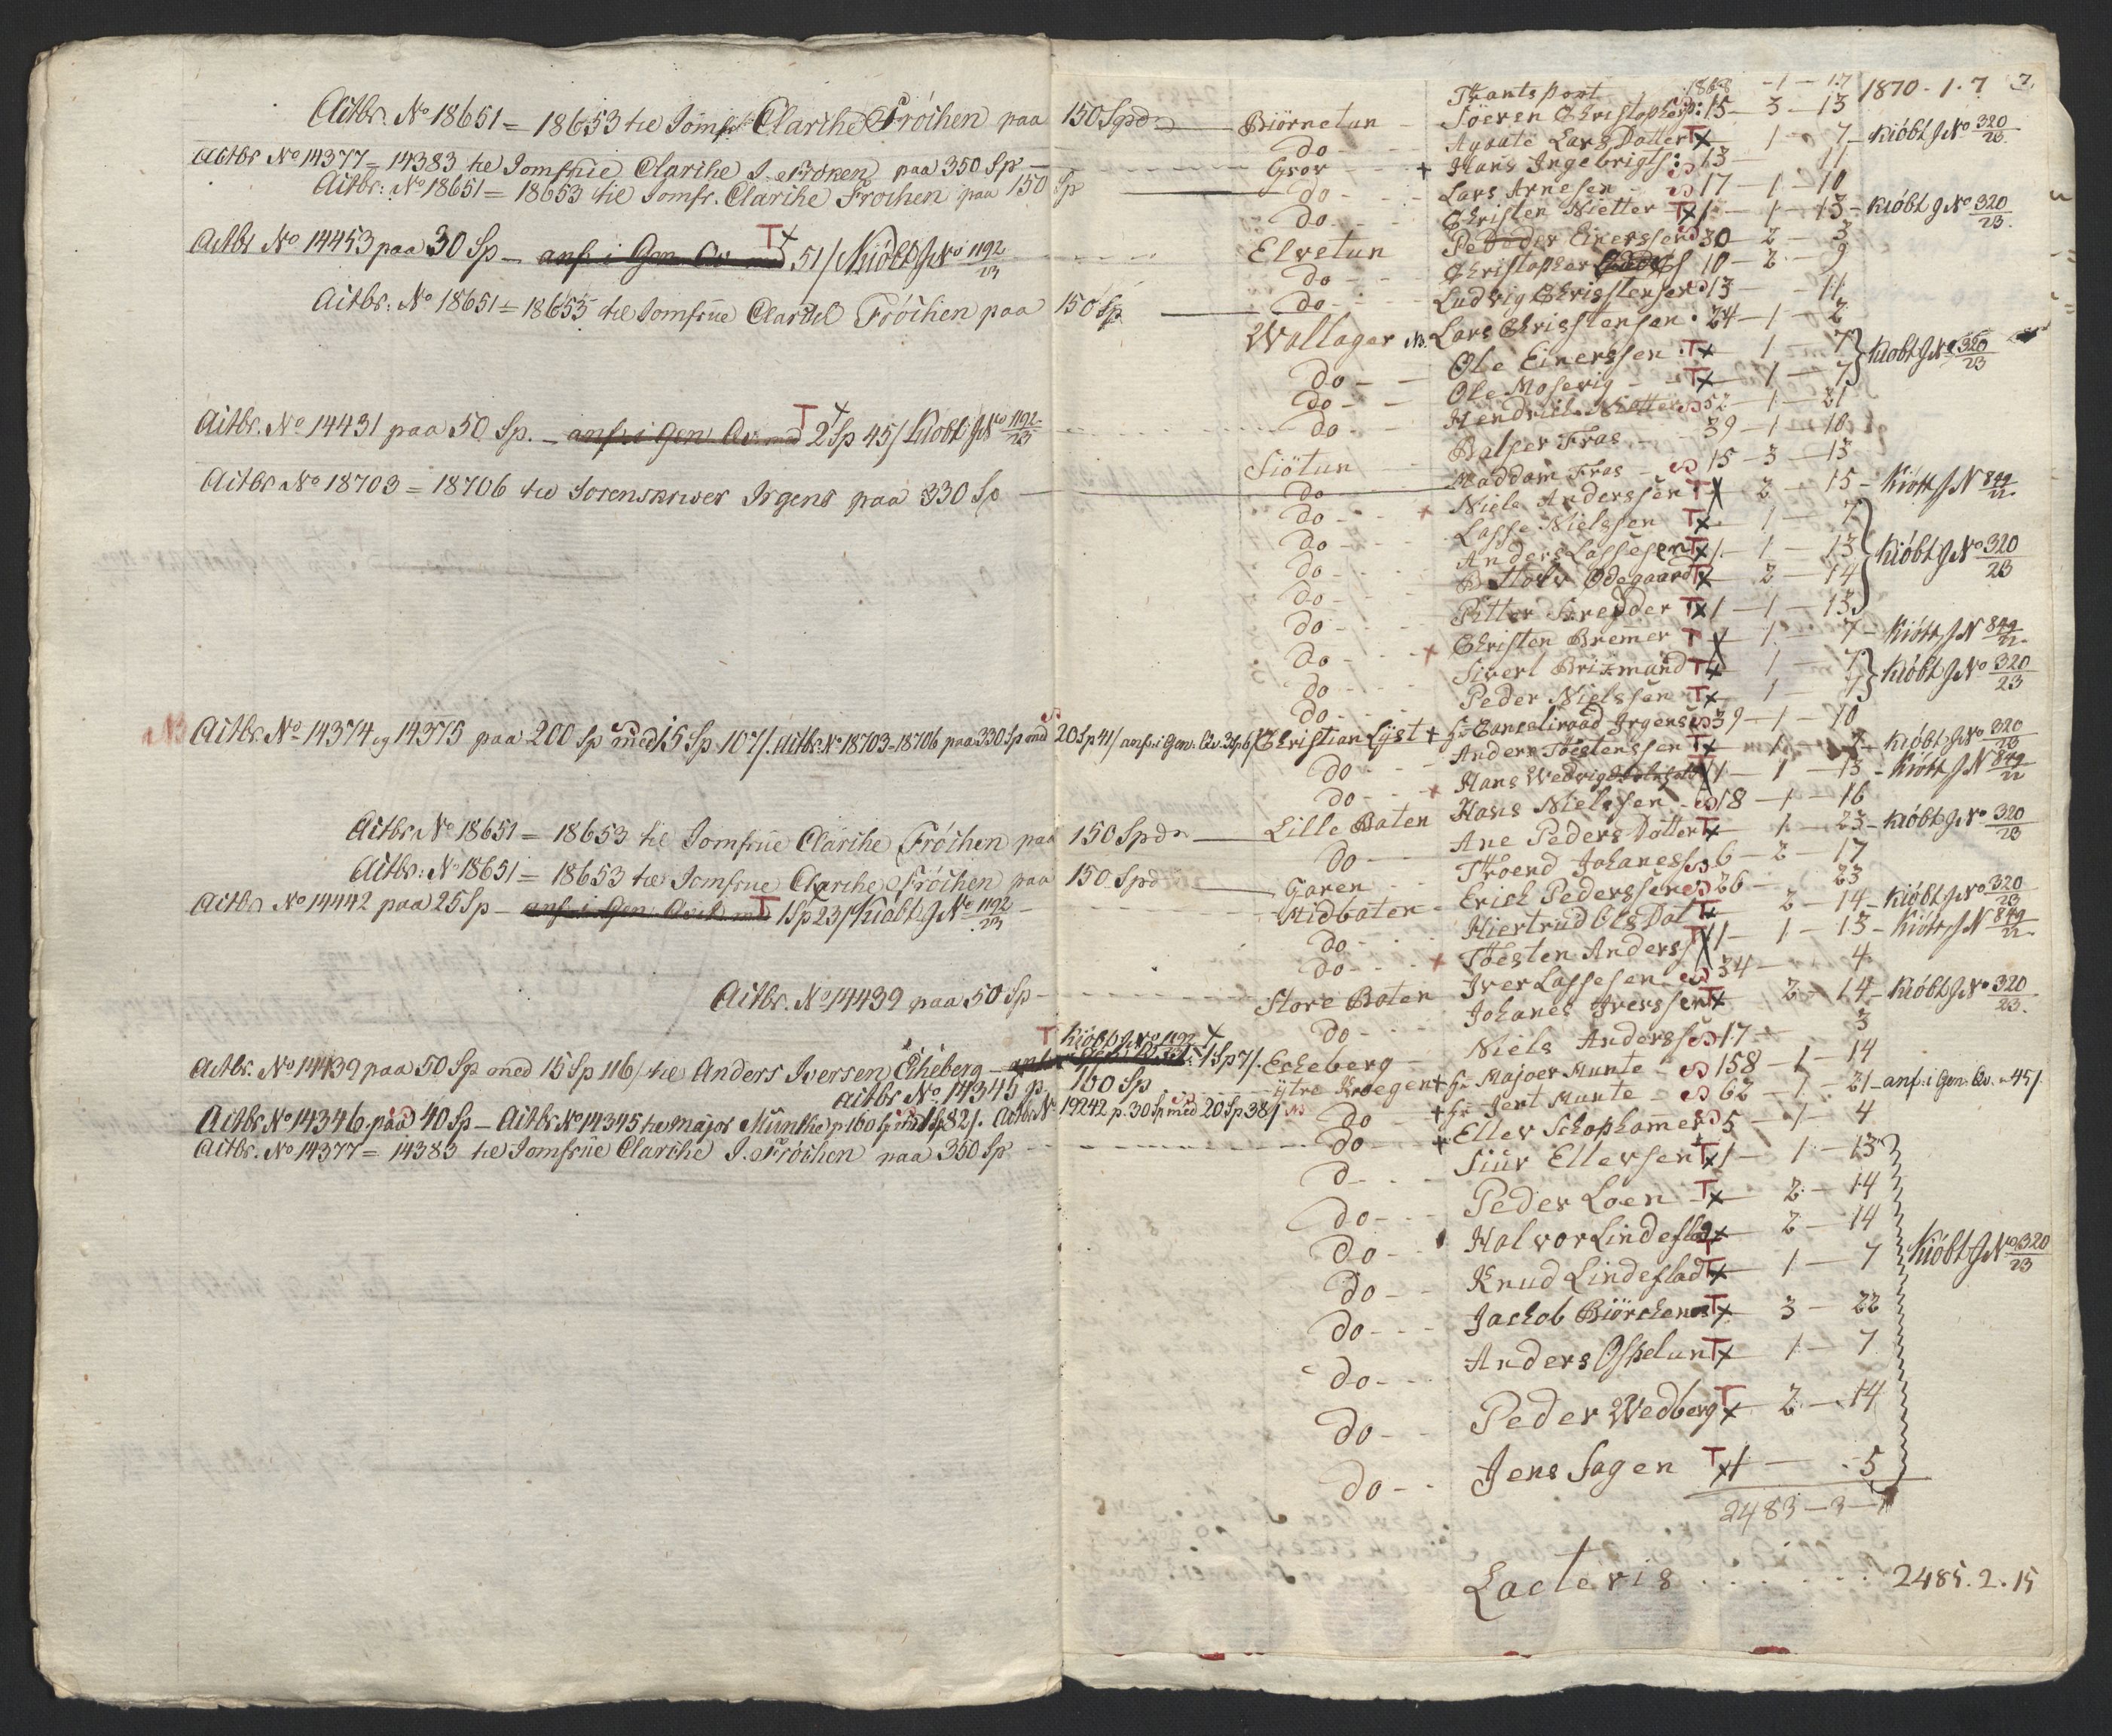 Actbr. No 18651 = 18653 til Jomfr. Clariche Fröchen paa 150 Spd
Actbr No 14377 = 14383 til Jomfrue Clariche J. Fröken paa 350 Sp
Actbr: No 18651 = 18653 til Jomfr. Clariche Fröchen paa 150 Sp
Actbr No 14453 paa 30 Sp - anf. i Gen. Qv. med T 51/ Kiöbt J No 1192/23
Actbr: No 18651 = 18653 til Jomfrue Fröchen paa 150 Sp
Actbr. No 14431 paa 50 Sp. - anf. i Gen. Qv. med T 2 Sp 45/ Kiobt J No 1192/23
Actbr No 18703 = 18706 til Sorenskriver Irgens paa 330 Sp
NB Actbr. No 14374 og 14375 paa 200 Sp med 15 Sp 107/. Actbr. No 18703=18706 paa 330 Sp med 20 Sp 41/ anf. i Gen. Qv. 3 Sp 6/
Actbr No 18651 = 18653 til Jomfrue Clariche Fröchen paa 150 Spd
Actbr: No 18651 = 18653 til Jomfrue Clariche Fröchen paa 150 Spd
Actbr No 14442 paa 25 Sp - anf. i Gen. Qvit. med T 1 Sp 23/ Kiobt J No 1192/23
Actbr. No 14439 paa 50 Sp
T Kiöbt J No 1192
Actbr. No 14439 paa 50 Sp med 15 Sp 116/ til Anders Iversen Echeberg - 1 Sp 7/.
Actbr No. 14345 p. 160 Sp
Actbr No 14346 paa 40 Sp - Actbr No 14345 til major Munthe p 160 Sp med 1 Sp 82/. Actbr No 19242 p. 30 Sp med 20 Sp 38/
Actbr. No 14377 = 14383 til Jomfrue Clariche J. Fröchen paa 350 Sp
Thantsport 1868 - 1 - 17 1870 . 1 . 7
Biörnetun Söeren Christophers: 15 - 3 - 13
do Agaate Lars Datter Tx 1 - 7 - Kiöbt J No 320/23
Gror + Hans Ingebrigts: 13 - 11
do Lars Arnesen 17 - 1 - 10
do Christen Nietter Tx 1 - 1 - 13 - Kiöbt J No 320/23
Elvetun Peder Einerssen 30 - 2 - 3
do Christopher 10 - 2 - 9
do Ludvig Christensen 13 - 11
Wollager NB. Lars Chrisstensen . 24 - 1 - 2
do Ole Einerssen Tx 1 - 7
do Ole Moserig Tx 1 - 7 } Kiobt J No 320/23
do Hendrich Nietter 52 - 1 - 21
Siötun Balser Fras 39 - 1 - 10
do Maddam Fras 15 - 3 - 13
do + Niels Anderssen Tx 2 - 15 - Kiöbt J N 849/22
do Lasse Nielssen Tx 1 - 7
do Anders Lassesen Tx 1 - 1 - 13 } Kiöbt J No 320/23
do Ödegaard Tx 2 - 14
do Petter Skredder Tx 1 - 1 - 13
do + Christen Bremer T x 1 - 7 - Kiöbt J N 849/22
do Siverl Brixmand Tx 1 - 7 } Kiöbt J No 320/23
do Peder Nielssen Tx 1 - 7
Christian Lÿst + Hr Canceliraad Irgens 39 - 1 - 10
do Anders Töestenssen Tx 1 - 7 - Kiöbt J No 320/23
do + Hans Wedvig Tx 1 - 1 - 13 - Kiöbt J N 849/22
Lille Baten Hans Nielssen 18 - 1 - 16
do Ane Peders Datter Tx 1 - 23 - Kiöbt J No 320/23
Garen Throend Johaness 6 - 2 - 17
Midbaten Erich Pederssen 26 - 23
do Hiertrud Ols Dat Tx 2 - 14 - Kiöbt J No 320/23
do + Thoesten Anderss Tx 1 - 1 - 13 - Kiöbt J N 849/22
Store Baten Iver Lassesen 34 - 4
do Johanes Iverssen Tx 2 - 14 - Kiöbt J No 320/23
Echeberg Niels Anderss 17 - 3
ÿtre Kroegen + Hr Majoer Munte 158 - 1 - 14
do + Hr Jert Munte 62 - 1 - 21 - anf. i Gen. Qv. 45/.
do + Eller Schophamer 5 - 1 - 4
d Siur Ellersen Tx 1 - 1 - 13
do Peder Loen Tx 2 - 14
do Halvor Lindeflad Tx 2 - 14
do Knud Lindeflad Tx 1 - 7 Kiöbt J No 320/23
do Jachob Biörchenes Tx 3 - 22
do Anders Ospelun Tx 1 - 7
do Peder Wedberg Tx 2 - 14
do Jens Sagen Tx 1 - 5
2483 - 3 -
Lacteris 2485 . 2 . 15